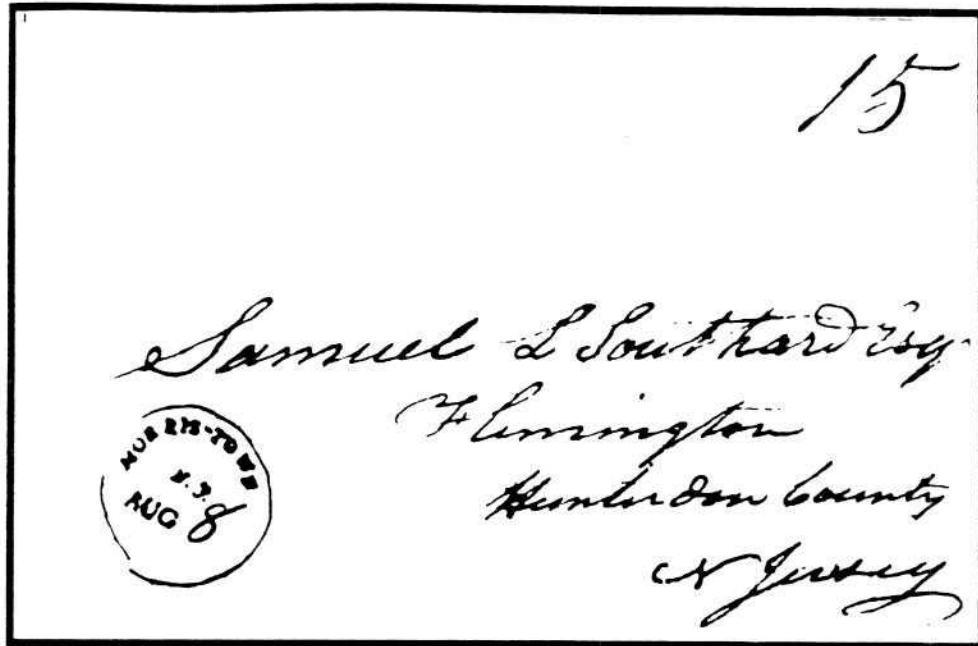 15
Samuel L Southard Esq
Flemington
Hunterdon County
N Jersey
MORRIS-TOWN
N.J.
AUG 8